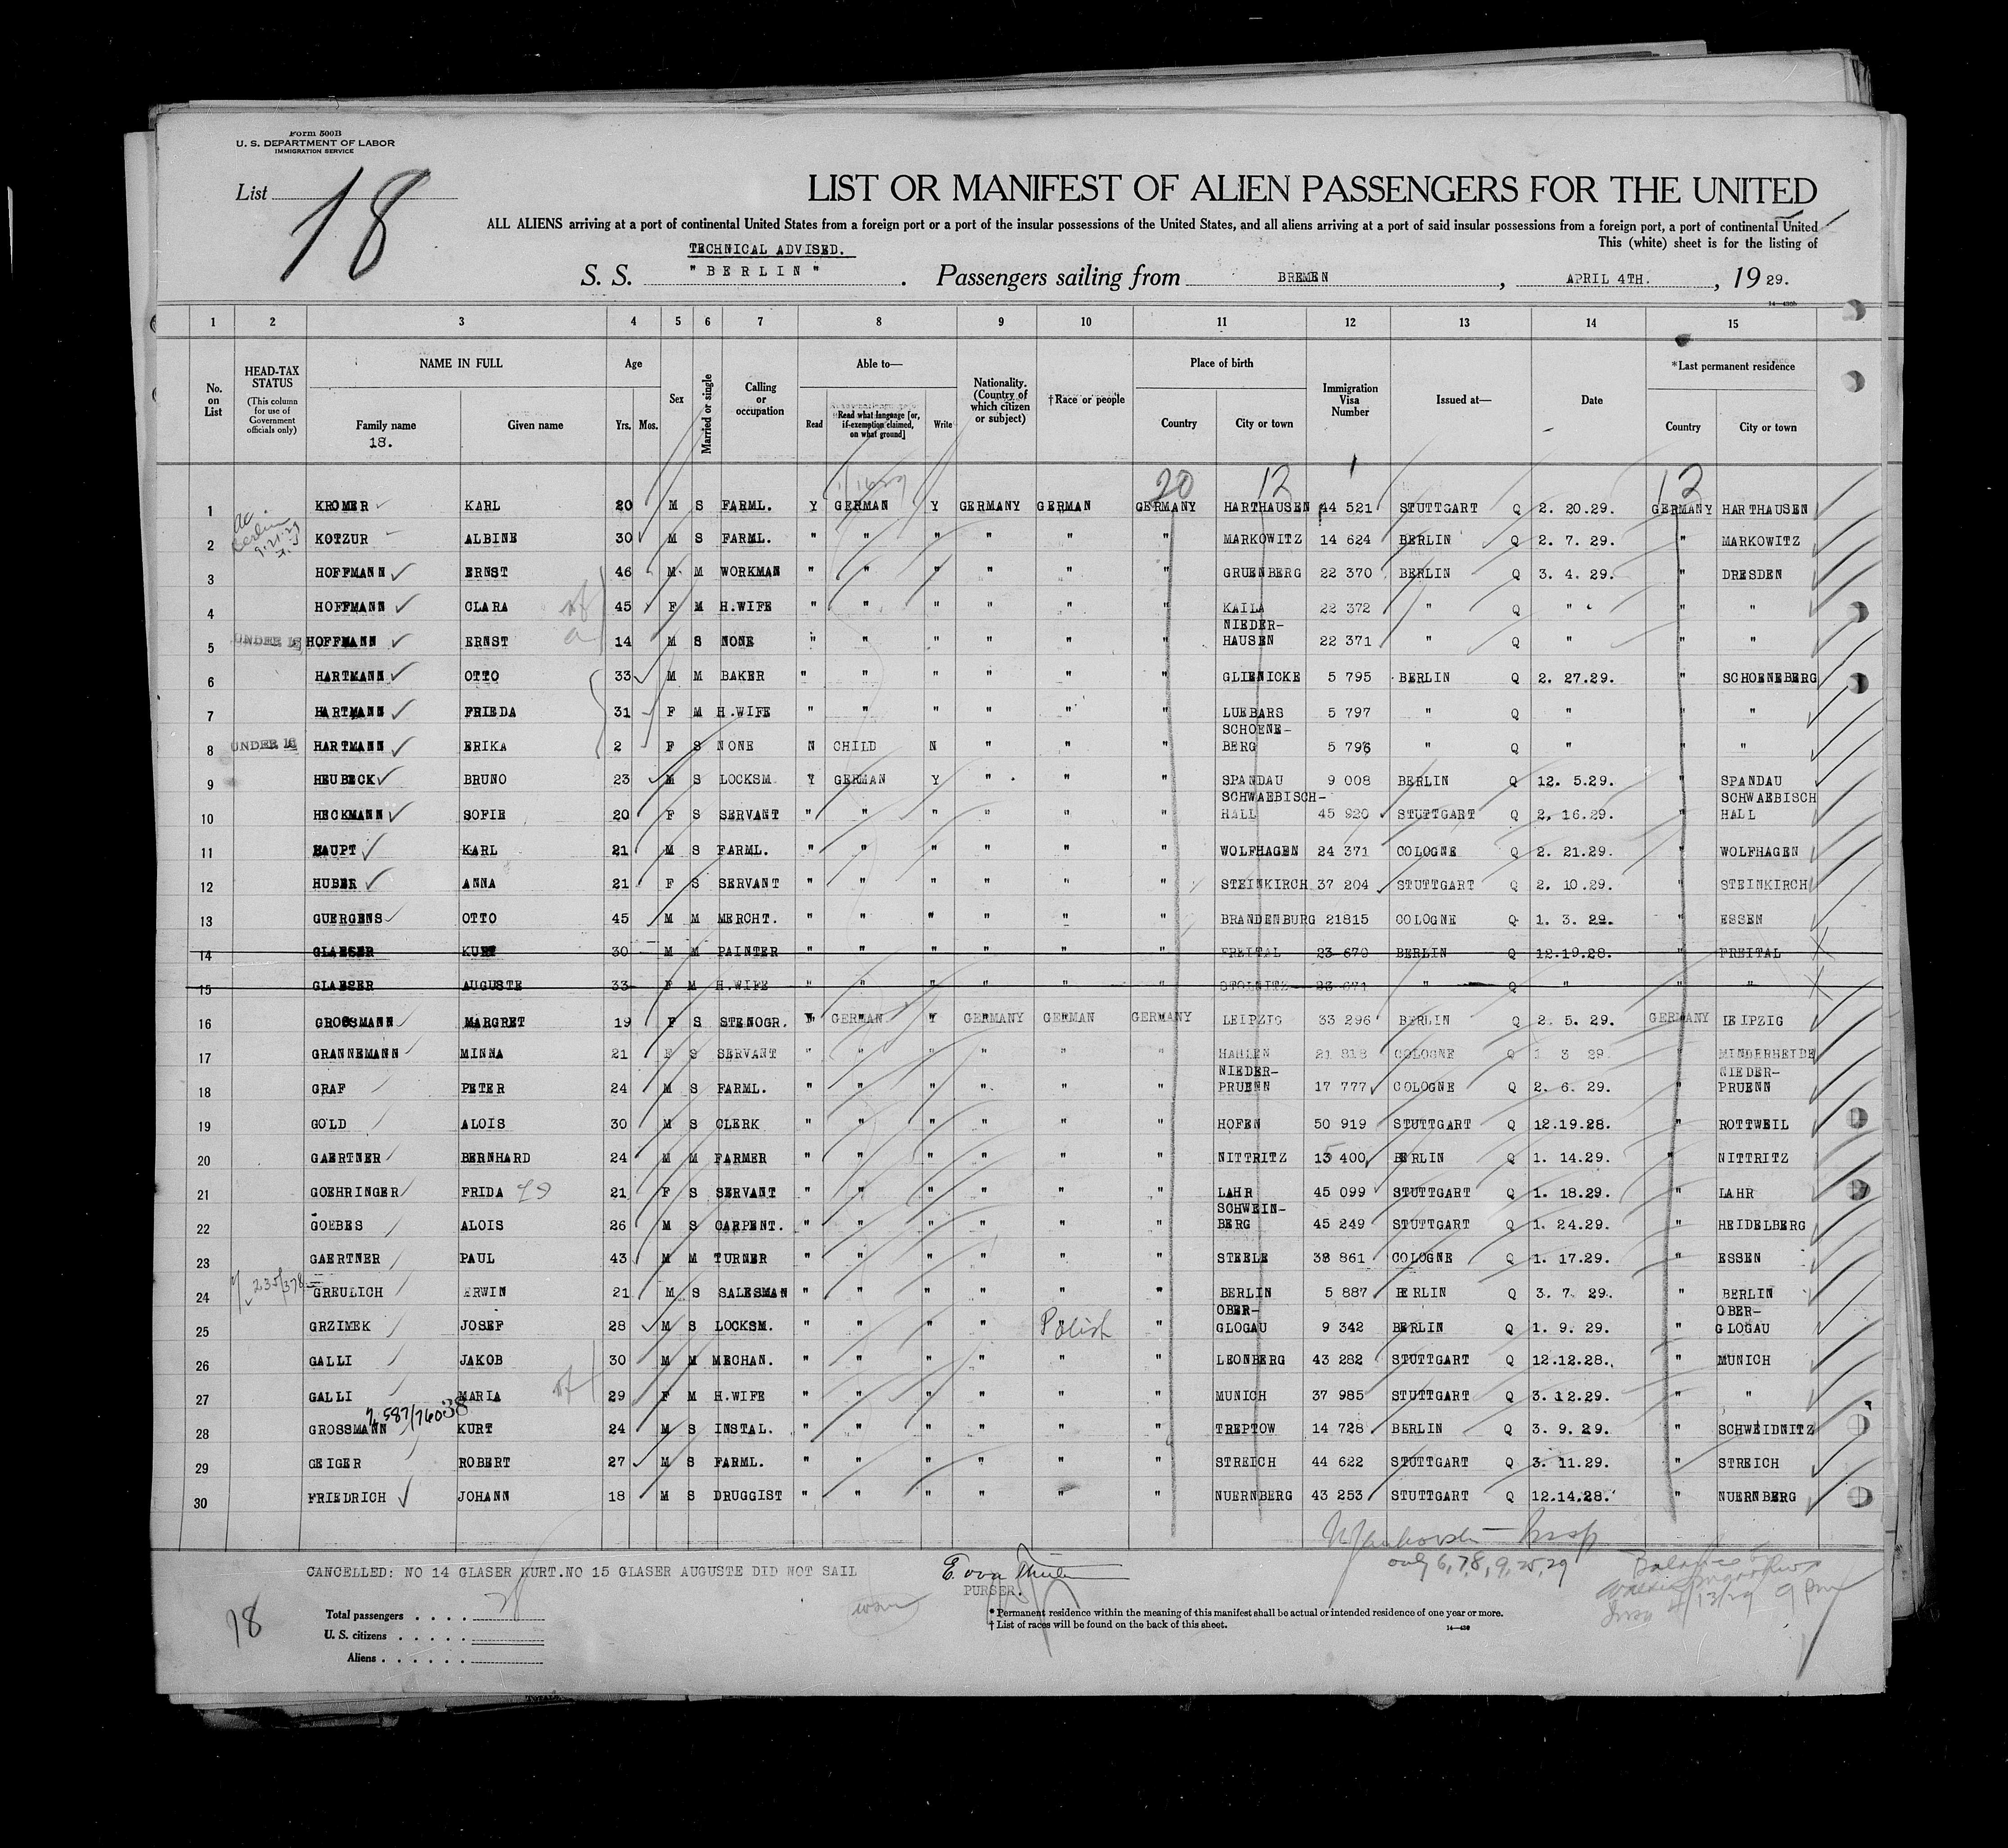 Form 500B
U. S. DEPARTMENT OF LABOR
IMMIGRATION SERVICE
List 18
LIST OR MANIFEST OF ALIEN PASSENGERS FOR THE UNITED
ALL ALIENS arriving at a port of continental United States from a foreign port or a port of the insular possessions of the United States, and all aliens arriving at a port of said insular possessions from a foreign port, a port of continental United
This (white) sheet is for the listing of
TECHNICAL ADVISED.
S. S. "BERLIN". Passengers sailing from BREMEN, APRIL 4TH., 19 29.
1 2 3 4 5 6 7 8 9 10 11 12 13 14 15
No. on List
HEAD-TAX STATUS (This column for use of Government officials only)
NAME IN FULL
Family name
18.
Given name
Age
Yrs. Mos.
Sex
Married or single
Calling or occupation
Able to—
Read
Read what language [or, if exemption claimed, on what ground]
Write
Nationality. (Country of which citizen or subject)
†Race or people
Place of birth
Country
City or town
Immigration Visa Number
Issued at—
Date
*Last permanent residence
Country
City or town
20 12 12
1 KROMER KARL 20 M S FARML. Y GERMAN Y GERMANY GERMAN GERMANY HARTHAUSEN 44 521 STUTTGART Q 2. 20.29. GERMANY HARTHAUSEN
2 KOTZUR ALBINE 30 M S FARML. " " " " " " MARKOWITZ 14 624 BERLIN Q 2. 7. 29. " MARKOWITZ
3 HOFFMANN ERNST 46 M M WORKMAN " " " " " " GRUENBERG 22 370 BERLIN Q 3. 4. 29. " DRESDEN
4 HOFFMANN CLARA 45 F M H.WIFE " " " " " " KAILA 22 372 " Q " " "
5 UNDER 16 HOFFMANN ERNST 14 M S NONE " " " " " " NIEDER-HAUSEN 22 371 " Q " " "
6 HARTMANN OTTO 33 M M BAKER " " " " " " GLIENICKE 5 795 BERLIN Q 2. 27.29. " SCHOENEBERG
7 HARTMANN FRIEDA 31 F M H.WIFE " " " " " " LUEBARS 5 797 " Q " " "
8 UNDER 16 HARTMANN ERIKA 2 F S NONE N CHILD N " " " SCHOENE-BERG 5 796 " Q " " "
9 HEUBECK BRUNO 23 M S LOCKSM. Y GERMAN Y " " " SPANDAU 9 008 BERLIN Q 12. 5.29. " SPANDAU
10 HECKMANN SOFIE 20 F S SERVANT " " " " " " SCHWAEBISCH-HALL 45 920 STUTTGART Q 2. 16.29. " SCHWAEBISCH HALL
11 HAUPT KARL 21 M S FARML. " " " " " " WOLFHAGEN 24 371 COLOGNE Q 2. 21.29. " WOLFHAGEN
12 HUBER ANNA 21 F S SERVANT " " " " " " STEINKIRCH 37 204 STUTTGART Q 2. 10.29. " STEINKIRCH
13 GUERGENS OTTO 45 M M MERCHT. " " " " " " BRANDENBURG 21815 COLOGNE Q 1. 3. 29. " ESSEN
14 GLAESER KURT 30 M M PAINTER " " " " " " FREITAL 23 670 BERLIN Q 12.19.28. " FREITAL
15 GLAESER AUGUSTE 33 F M H.WIFE " " " " " " STOLNITZ 23 671 " Q " " "
16 GROSSMANN MARGRET 19 F S STENOGR. Y GERMAN Y GERMANY GERMAN GERMANY LEIPZIG 33 296 BERLIN Q 2. 5. 29. GERMANY LEIPZIG
17 GRANNEMANN MINNA 21 F S SERVANT " " " " " " HAHLEN 21 818 COLOGNE Q 1 3 29. " MINDERHEIDE
18 GRAF PETER 24 M S FARML. " " " " " " NIEDER-PRUENN 17 777 COLOGNE Q 2. 6. 29. " NIEDER-PRUENN
19 GOLD ALOIS 30 M S CLERK " " " " " " HOFEN 50 919 STUTTGART Q 12.19.28. " ROTTWEIL
20 GAERTNER BERNHARD 24 M M FARMER " " " " " " NITTRITZ 15 400 BERLIN Q 1. 14.29. " NITTRITZ
21 GOEHRINGER FRIDA 21 F S SERVANT " " " " " " LAHR 45 099 STUTTGART Q 1. 18.29. " LAHR
22 GOEBES ALOIS 26 M S CARPENT. " " " " " " SCHWEIN-BERG 45 249 STUTTGART Q 1. 24.29. " HEIDELBERG
23 GAERTNER PAUL 43 M M TURNER " " " " " " STEELE 38 861 COLOGNE Q 1. 17.29. " ESSEN
24 235/378 GREULICH ERWIN 21 M S SALESMAN " " " " " " BERLIN 5 887 BERLIN Q 3. 7. 29. " BERLIN
25 GRZIMEK JOSEF 28 M S LOCKSM. " " " " Polish " OBER-GLOGAU 9 342 BERLIN Q 1. 9. 29. " OBER-GLOGAU
26 GALLI JAKOB 30 M M MECHAN. " " " " " " LEONBERG 43 282 STUTTGART Q 12.12.28. " MUNICH
27 GALLI MARIA 29 F M H.WIFE " " " " " " MUNICH 37 985 STUTTGART Q 3. 12.29. " "
587/76038
28 GROSSMANN KURT 24 M S INSTAL. " " " " " " TREPTOW 14 728 BERLIN Q 3. 9. 29. " SCHWEIDNITZ
29 GEIGER ROBERT 27 M S FARML. " " " " " " STREICH 44 622 STUTTGART Q 3. 11.29. " STREICH
30 FRIEDRICH JOHANN 18 M S DRUGGIST " " " " " " NUERNBERG 43 253 STUTTGART Q 12.14.28. " NUERNBERG
CANCELLED: NO 14 GLASER KURT.NO 15 GLASER AUGUSTE DID NOT SAIL
PURSER.
only 6,7,8,9,25,29
4/13/29 9 pm
18
Total passengers . . . .
U. S. citizens . . . . .
Aliens . . . . . .
* Permanent residence within the meaning of this manifest shall be actual or intended residence of one year or more.
† List of races will be found on the back of this sheet.
14—430